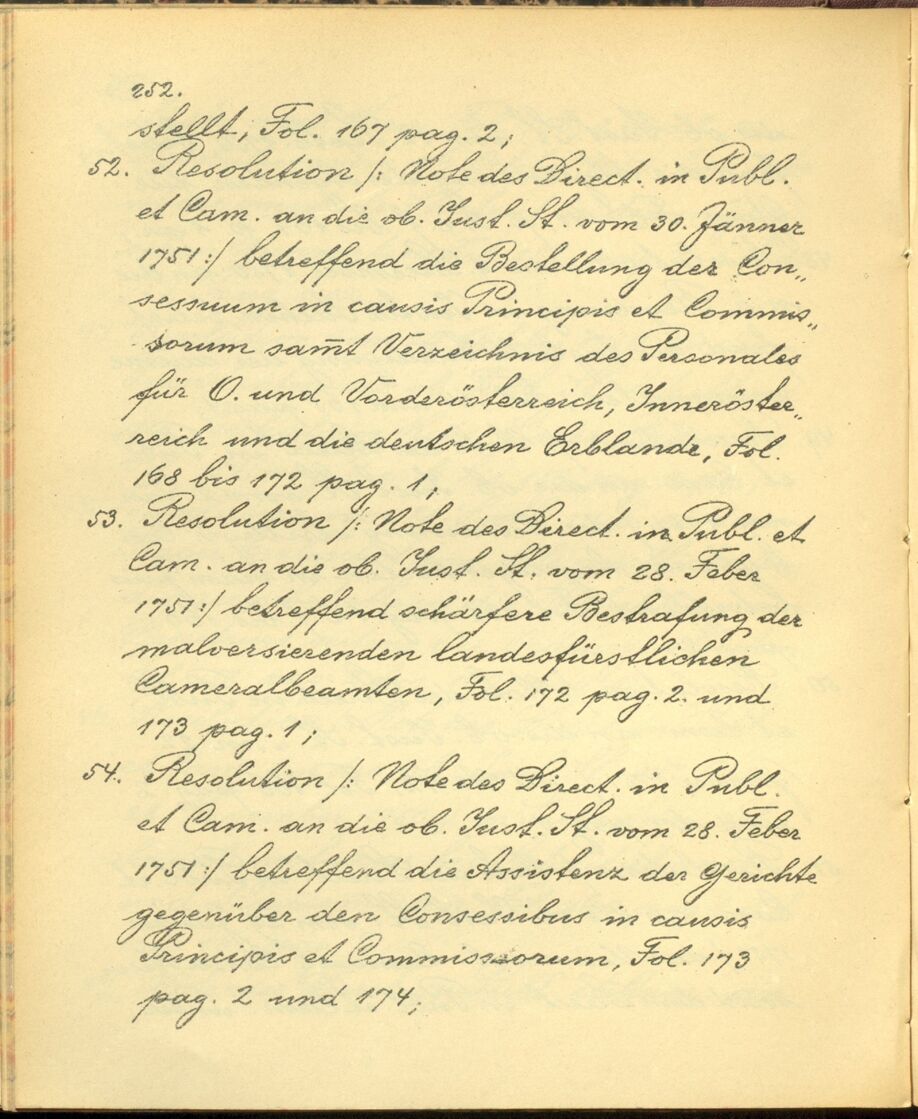 252.
stellt, Fol. 167 pag. 2;
52. Resolution /: Note des Direct. in Publ.
et Cam. an die ob. Just. St. vom 30. Jänner
1751:/ betreffend die Bestellung der Con„
sessuum in causis Principis et Commis„
sorum sam̄t Verzeichnis des Personales
für O. und Vorderösterreich, Inneröster„
reich und die deutschen Erblande, Fol.
168 bis 172 pag. 1;
53. Resolution /: Note des Direct. in Publ. et
Cam. an die ob. Just. St. vom 28. Feber
1751:/ betreffend schärfere Bestrafung der
malversierenden landesfürstlichen
Cameralbeamten, Fol. 172 pag. 2. und
173 pag. 1;
54. Resolution /: Note des Direct. in Publ.
et Cam. an die ob. Just. St. vom 28. Feber
1751:/ betreffend die Assistenz der Gerichte
gegenüber den Consessibus in causis
Principis et Commissorum, Fol. 173
pag. 2 und 174;